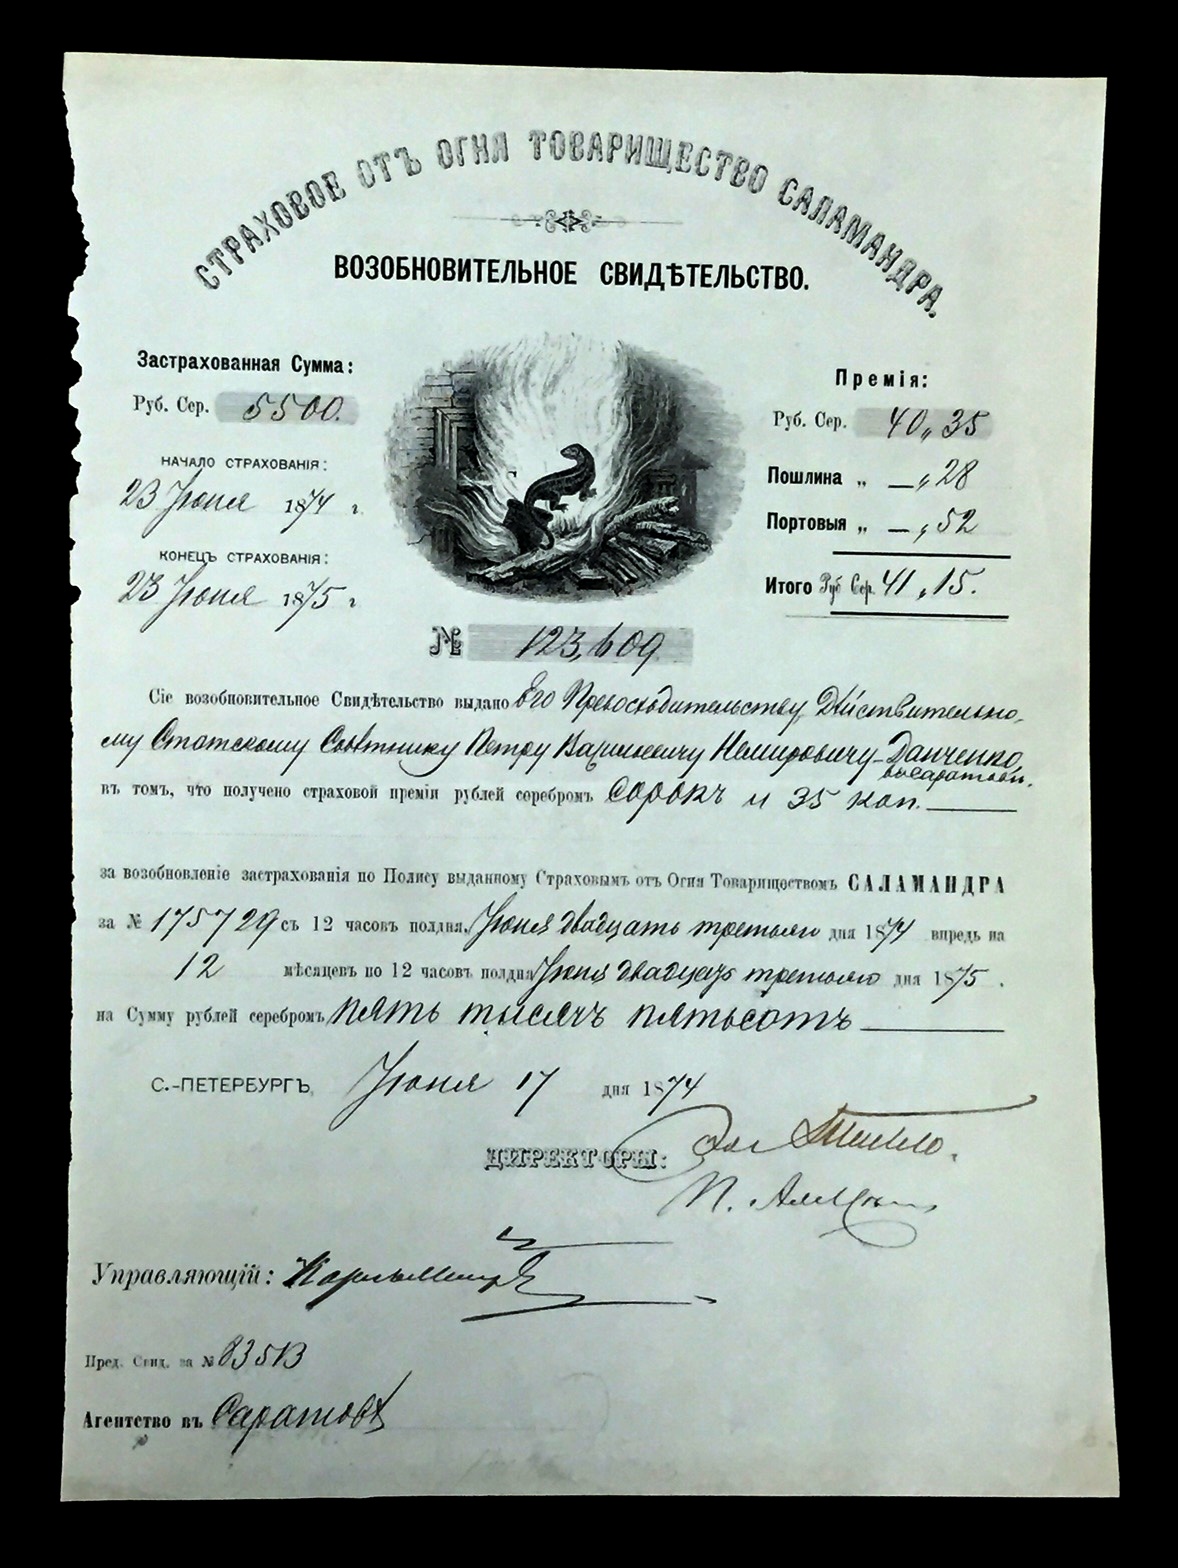 СТРАХОВОЕ ОТЪ ОГНЯ ТОВАРИЩЕСТВО САЛАМАНДРА.
ВОЗОБНОВИТЕЛЬНОЕ СВИДѢТЕЛЬСТВО.
Застрахованная Сумма:
Руб. Сер. 5500.
НАЧАЛО СТРАХОВАНІЯ:
23 Іюня 1874 г
КОНЕЦЪ СТРАХОВАНІЯ:
23 Іюня 1875 г
Премія:
Руб. Сер. 40„35
Пошлина „ —„28
Портовыя „ —„52
Итого Руб Сер. 41„15.
№ 123,609
Сіе возобновительное Свидѣтельство выдано Его Превосходительству Дѣйствительно-
му Статскому Совѣтнику Петру Васильевичу Немировичу-Данченко
въ Саратовѣ.
въ томъ, что получено страховой преміи рублей серебромъ сорокъ и 35 коп.
за возобновленіе застрахованія по Полису выданному Страховымъ отъ Огня Товариществомъ САЛАМАНДРА
за № 175729 съ 12 часовъ полдня, Іюня двадцать третьяго дня 1874 впредь на
12 мѣсяцевъ по 12 часовъ полдня Іюня двадцать третьяго дня 1875.
на Сумму рублей серебромъ пять тысячъ пятьсотъ
С.-ПЕТЕРБУРГЪ, Іюня 17 дня 1874
ДИРЕКТОРЫ:
П.
Управляющій:
Пред. Свид. за № 83513
Агентство въ Саратовѣ